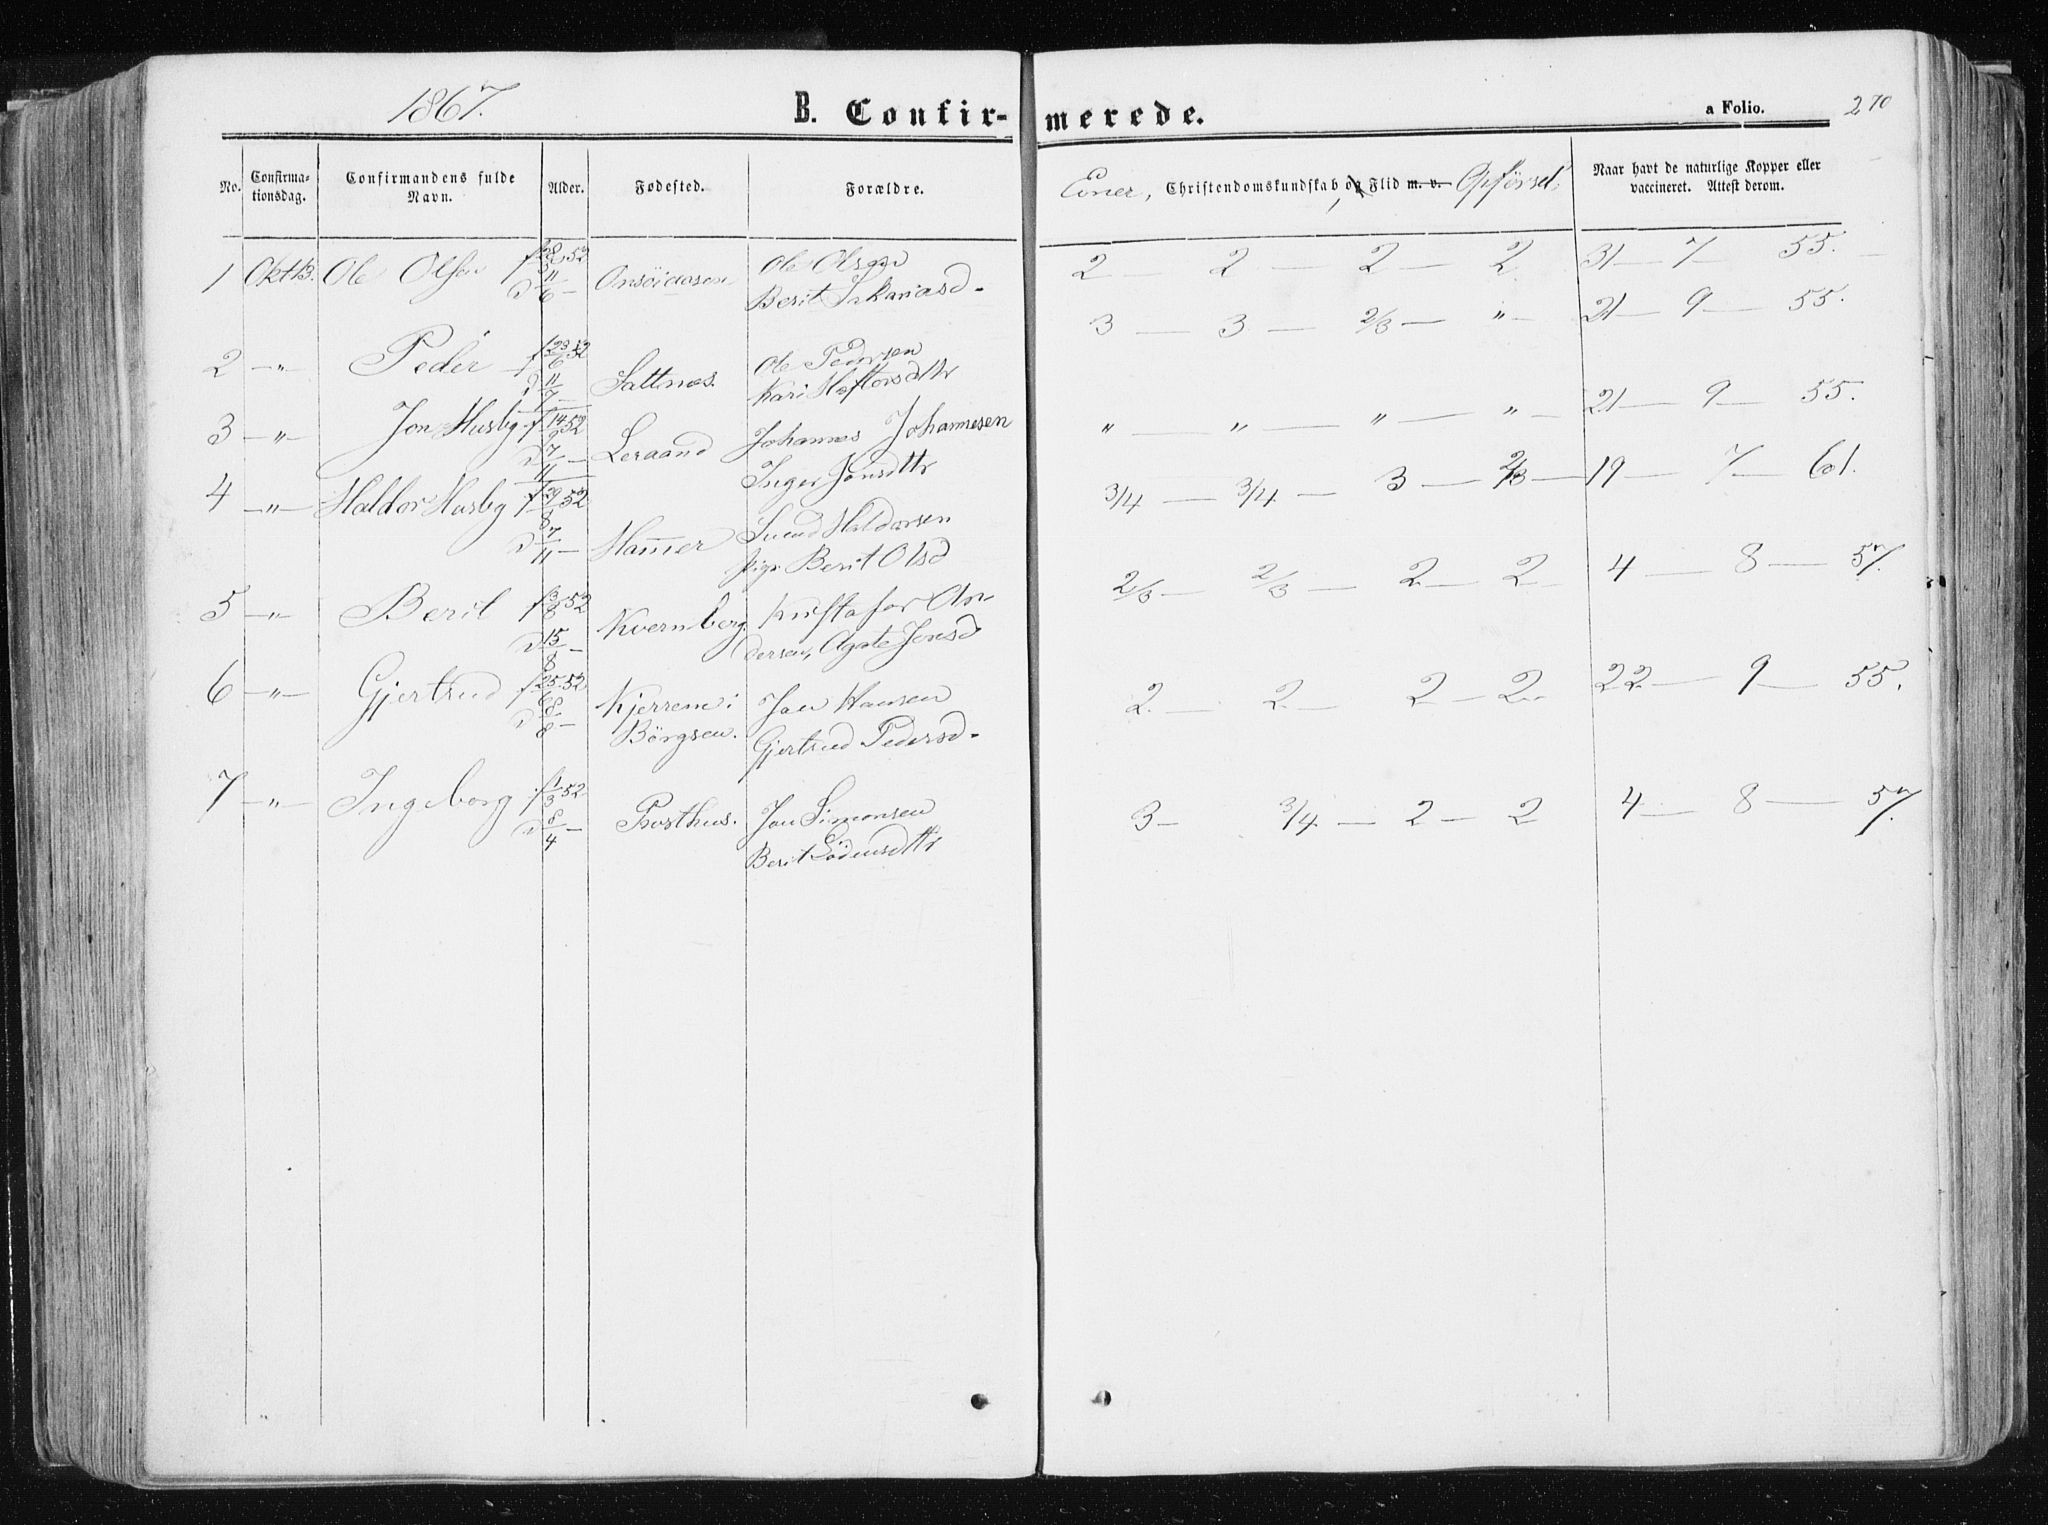 1867.
B. Confir-merede.
a Folio. 270
No. Confirma-tionsdag. Confirmandens fulde Navn. Alder. Fødested. Forældre. Evner, Christendomskundskab og Flid m. v. Opførsel, Naar havt de naturlige Kopper eller vaccineret. Attest derom.
1 Okt 13. Ole Olsen f 28/3 52 d 11/6 — Ole Olsen
Berit Sakariasd. 2 — 2 — 2 — 2 31 — 7 — 55.
2 — " — Peder f 23/6 52 d 11/7 — Saltnæs. Ole Pedersen
Kari Hæftorsdtr 3 — 3 — 2/3 — " — 21 — 9 — 55.
3 — " — Jon Husby f 14/9 52 d 7/11 — Leraand Johannes Johannesen
Inger Jonsdtr " — " — " — " — 21 — 9 — 55.
4 — " — Haldor Husby f 29/8 52 d 7/11 — Hammer Svend Haldorsen
pige Berit Olsd 3/4 — 3/4 — 3 — 2/3 — 19 — 7 — 61.
5 — " — Berit f 3/8 52 d 15/8 — Kvernberg. Kristofor An-
dersen, Agate Jonsd 2/3 — 2/3 — 2 — 2 — 4 — 8 — 57.
6 — " — Gjertrud f 25/6 52 d 8/8 — Kjerrem i
Börgsen. Jon Hansen
Gjertrud Pedersd. 2 — 2 — 2 — 2 — 22 — 9 — 55.
7 — " — Ingeborg f 1/3 52 d 8/4 — Prosthus. Jon Simonsen
Berit 3 — 3/4 — 2 — 2 4 — 8 — 57.